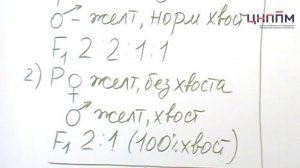 ♂ – желт, норм хвост
ЦНППМ
F₁ 2 2:1:1
2) P ♀ желт, без хвоста
♂ желт, хвост
F₁ 2:1 (100% хвост)